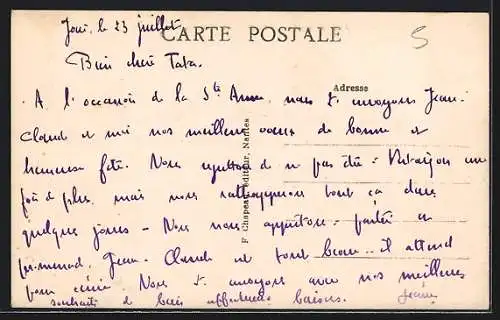 Joué, le 23 juillet
CARTE POSTALE
5
Bien chère Tata.
Adresse
A l'occasion de la Ste Anne, nous t'envoyons Jean-
Claude et moi nos meilleurs vœux de bonne et
heureuse fête. Nous regrettons de ne pas être à une
fois de plus, mais nous rattraperons tout ça dans
quelques jours - Nous nous apprêtons à partir en
promenade, Jean-Claude est tout beau.. il attend
pour écrire. Nous t'envoyons avec nos meilleurs
souhaits de bien affectueux baisers. Jeanne
F Chapeau, éditeur, Nantes